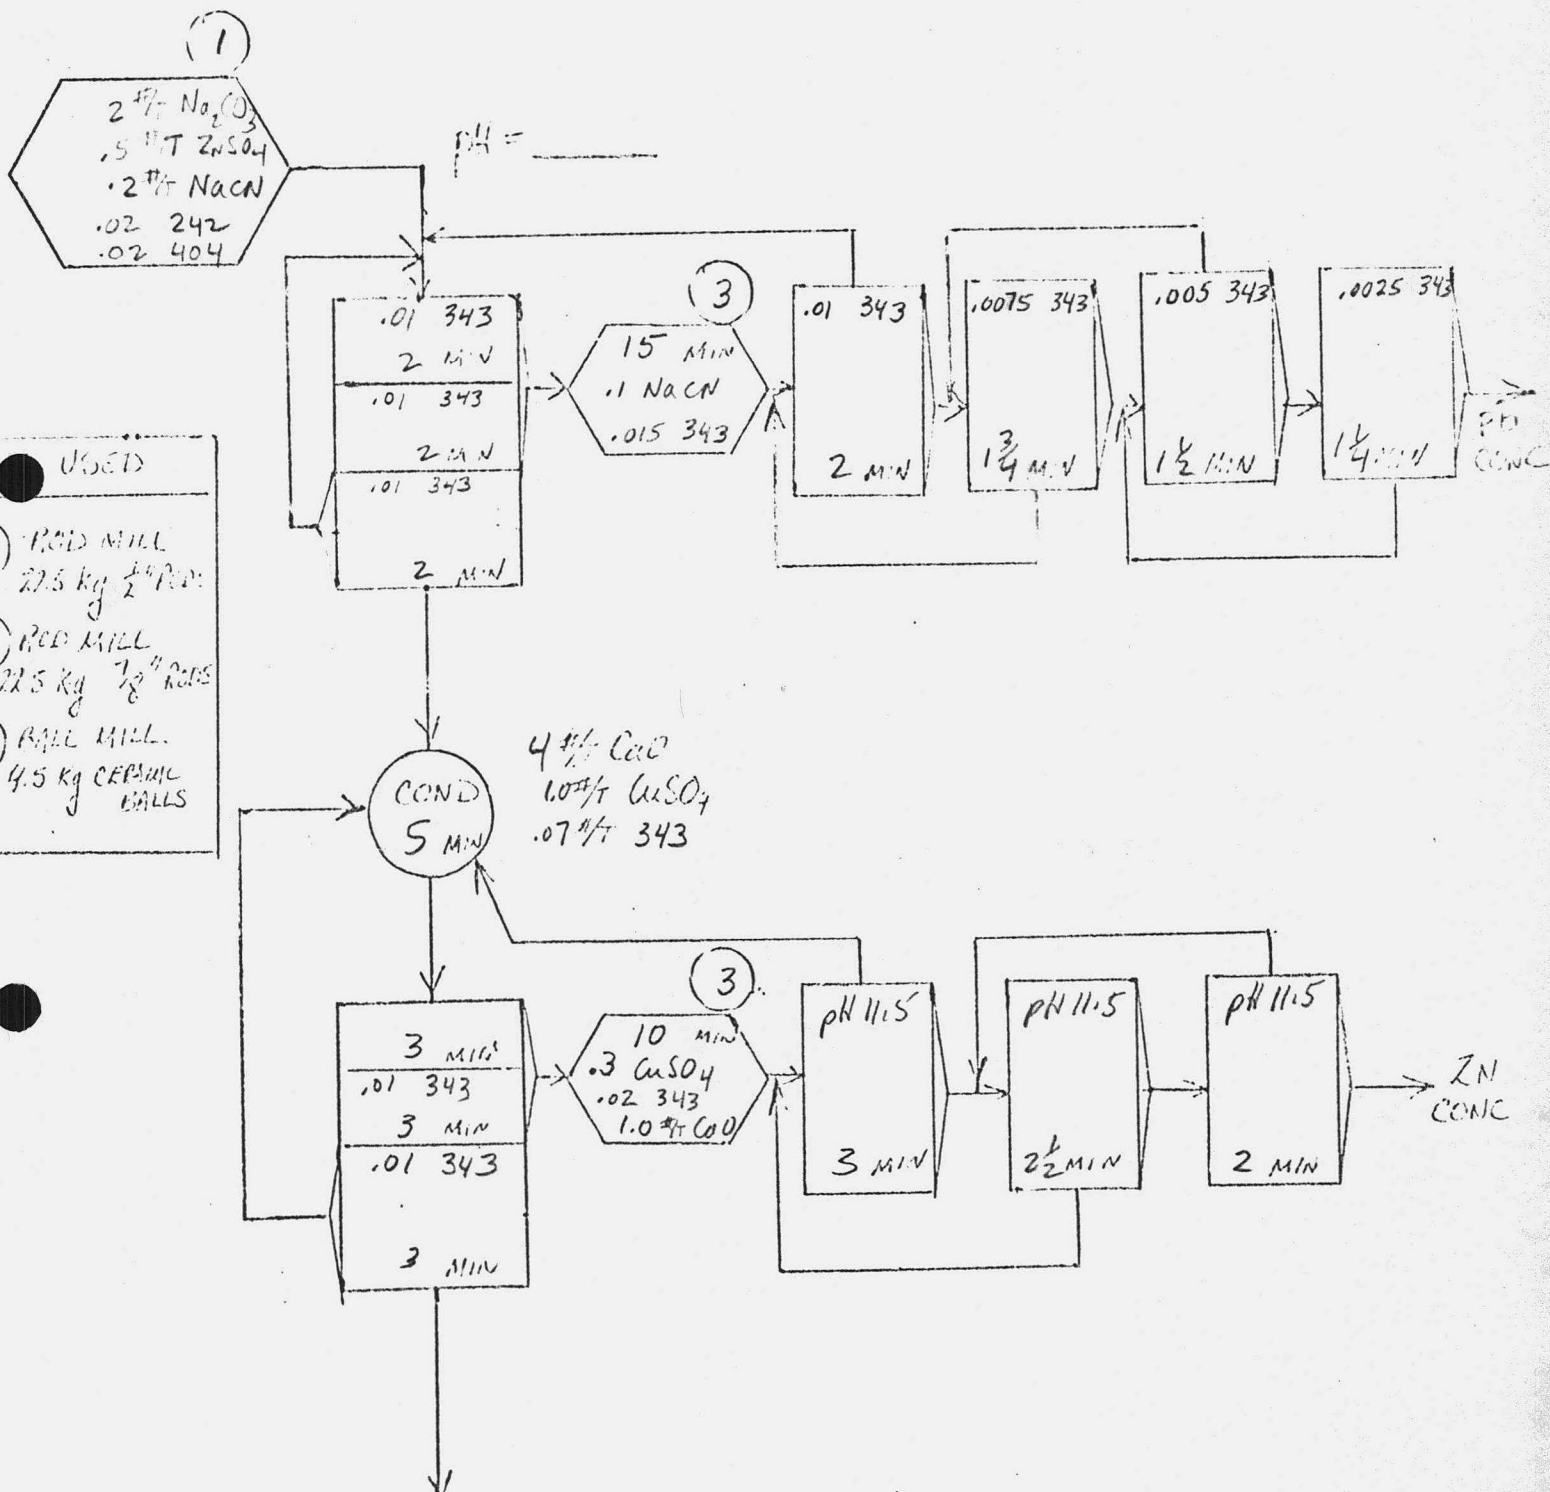 1
2 #/T Na2CO3
.5 #/T ZnSO4
.2 #/T NaCN
.02 242
.02 404
pH = ______
.01 343
2 MIN
.01 343
2 MIN
.01 343
2 MIN
3
15 MIN
.1 NaCN
.015 343
.01 343
2 MIN
.0075 343
1 3/4 MIN
.005 343
1 1/2 MIN
.0025 343
1 1/4 MIN
Pb
CONC
USED
ROD MILL
22.5 kg 1/2" RODS
ROD MILL
22.5 kg 7/8" RODS
BALL MILL.
4.5 kg CERAMIC
BALLS
COND
5 MIN
4 #/T CaO
1.0 #/T CuSO4
.07 #/T 343
3 MIN
.01 343
3 MIN
.01 343
3 MIN
3
10 MIN
.3 CuSO4
.02 343
1.0 #/T CaO
pH 11.5
3 MIN
pH 11.5
2 1/2 MIN
pH 11.5
2 MIN
ZN
CONC